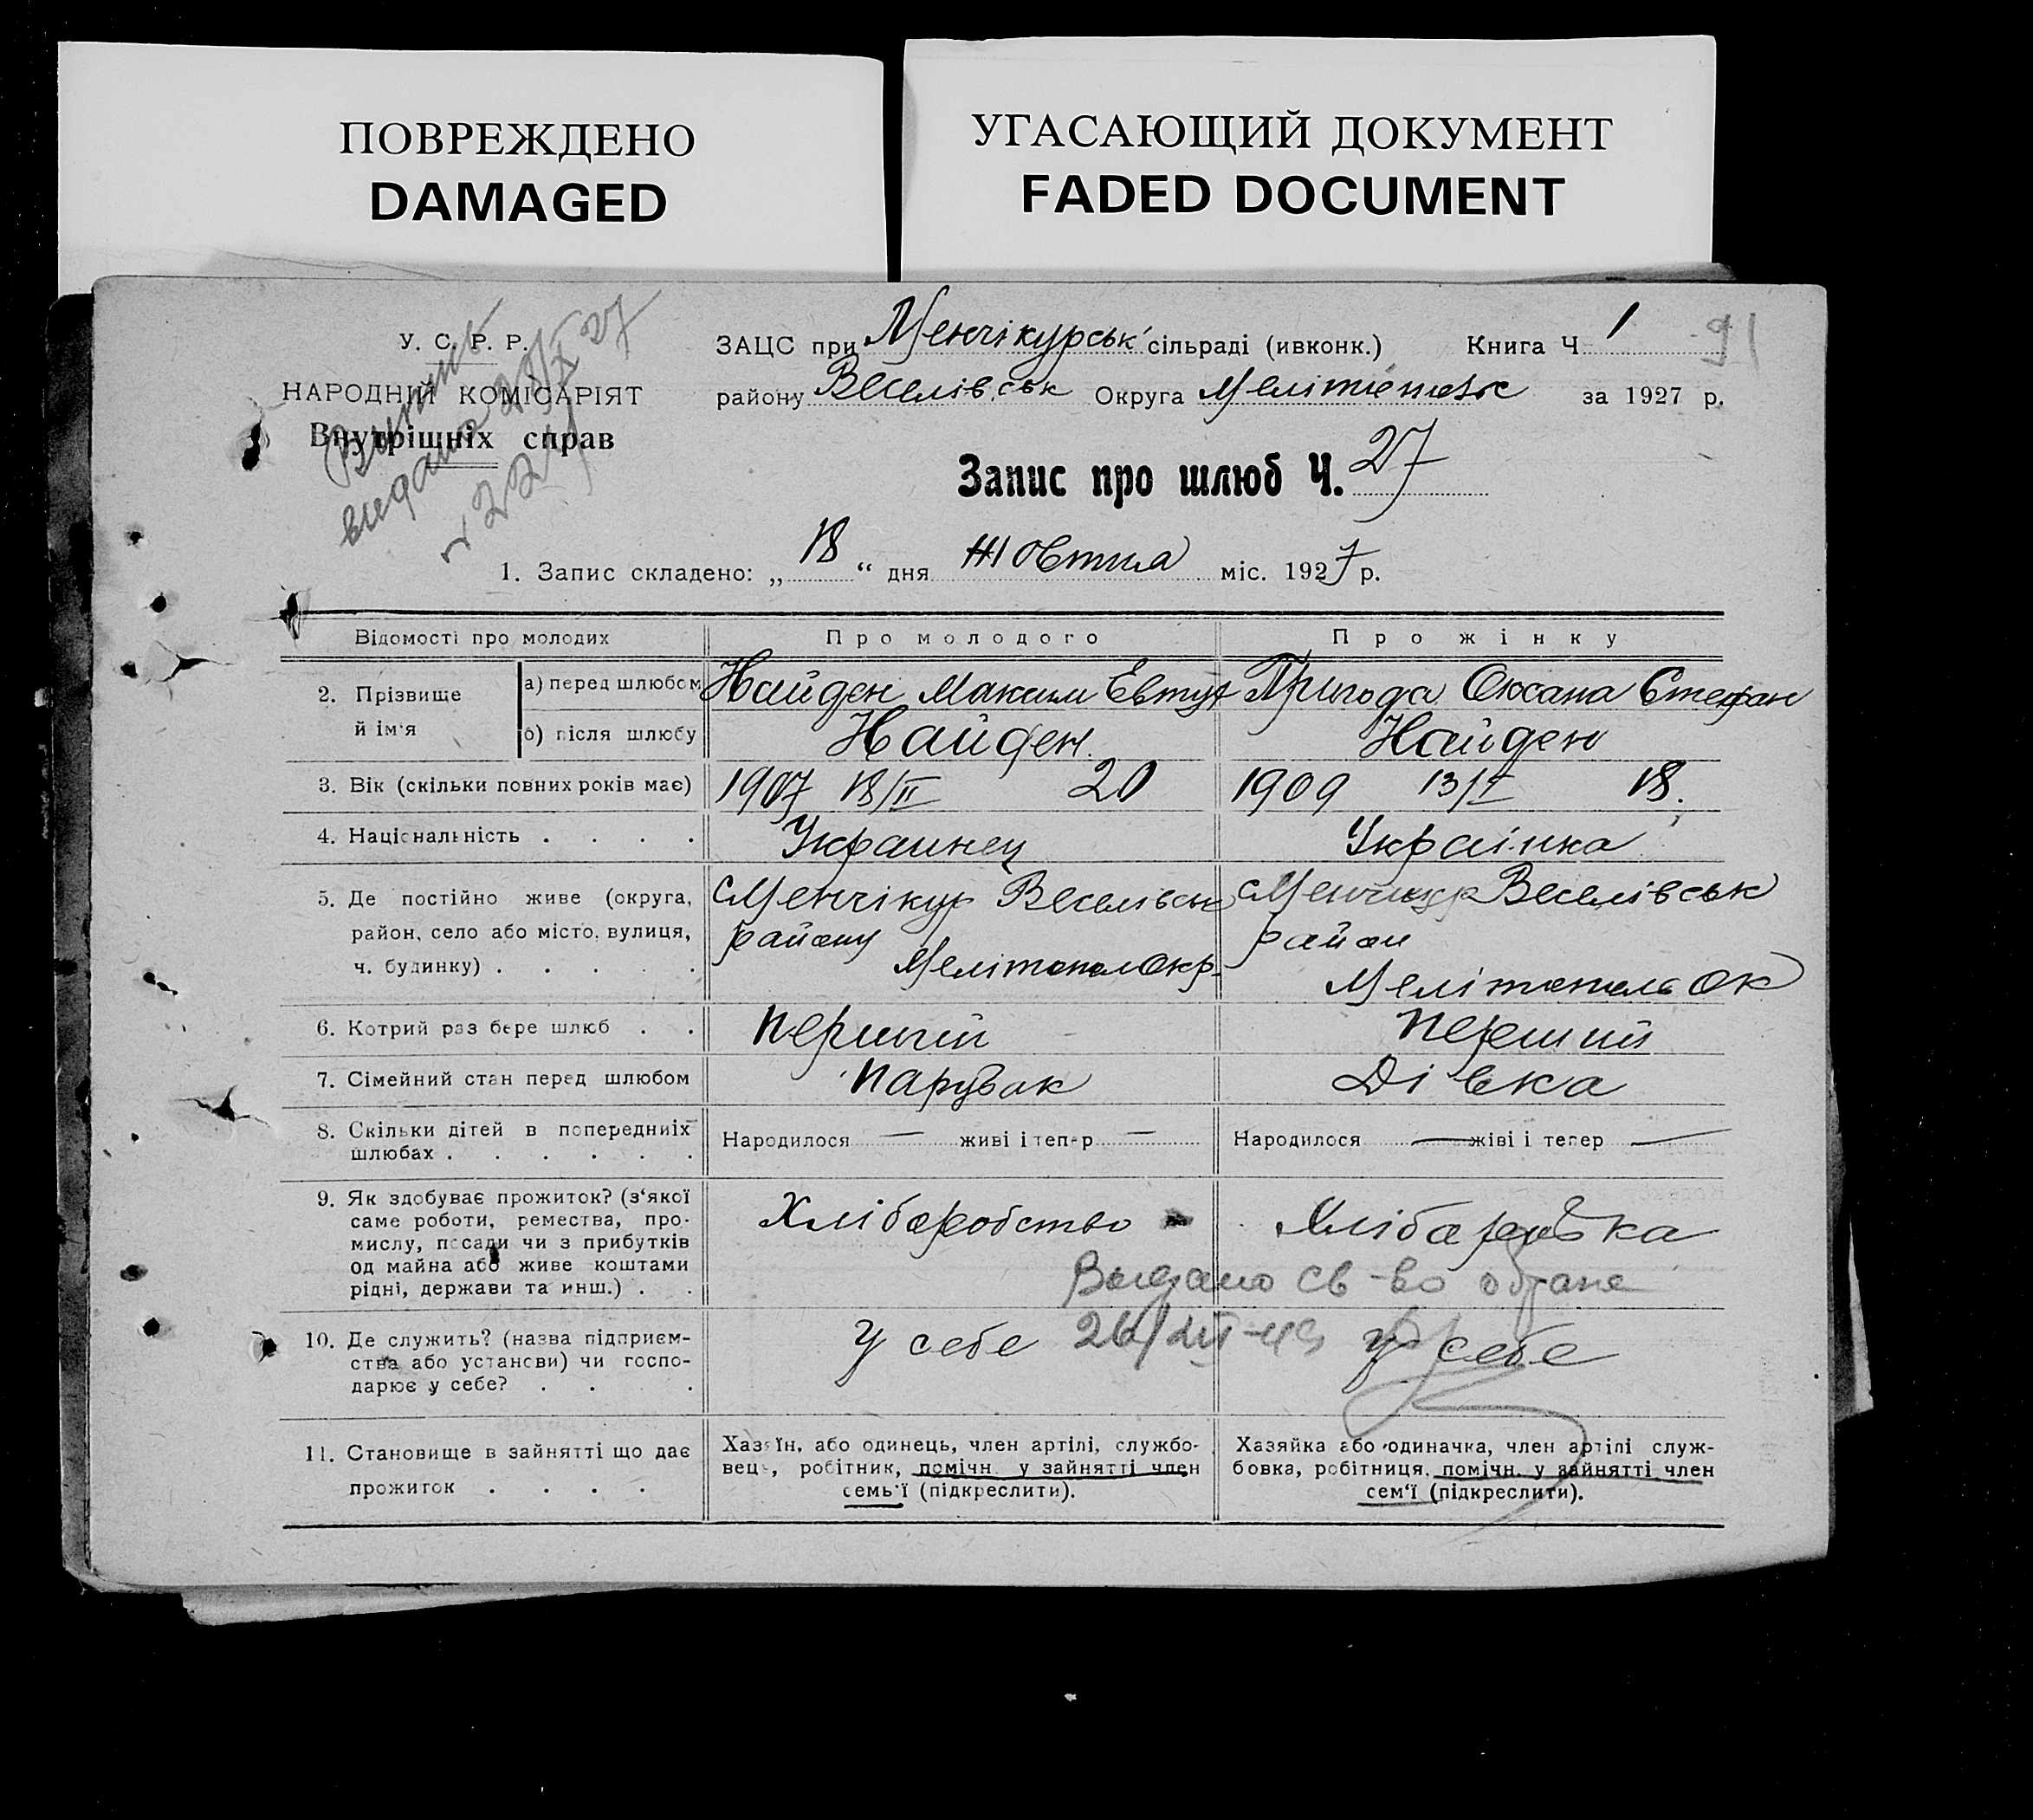 ПОВРЕЖДЕНО
DAMAGED
УГАСАЮЩИЙ ДОКУМЕНТ
FADED DOCUMENT
У. С. Р. Р.
НАРОДНИЙ КОМІСАРІЯТ
Внутрішніх справ
Випись
видано 28/X 27
ЗАЦС при Менчікурськ сільраді (ивконк.) Книга Ч 1 91
району Веселівськ Округа Мелітопольск за 1927 р.
Запис про шлюб Ч. 27
1. Запис складено: „ 18 “ дня Жовтня міс. 1927 р.
Відомості про молодих Про молодого Про жінку
2. Прізвище й ім'я
а) перед шлюбом Найден Максим Евтух Пригода Оксана Стефан
б) після шлюбу Найден Найден
3. Вік (скільки повних років має) 1907 18/II 20 1909 13/I 18.
4. Національність . . . . Украинец Украінка
5. Де постійно живе (округа, район, село або місто, вулиця, ч. будинку) . . . . .
Менчікур Веселівськ
району
Мелітопол Окр.
Менчикур Веселівськ
район
Мелітополь Ок
6. Котрий раз бере шлюб . . Перший Перший
7. Сімейний стан перед шлюбом Парубак Дівка
8. Скільки дітей в попередниіх
шлюбах . . . . . .
Народилося — живі і тепер — Народилося — жіві і тепер —
9. Як здобуває прожиток? (з‘якої
саме роботи, ремества, про-
мислу, посади чи з прибутків
од майна або живе коштами
рідні, держави та инш.) . .
Хлібаробство Хлібаробка
Выдано св-во обгане
10. Де служить? (назва підприєм-
ства або установи) чи госпо-
дарює у себе? . . .
У себе У себе
11. Становище в зайнятті що дає
прожиток . . . .
Хазяїн, або одинець, член артілі, службо-
вець, робітник, помічн. у зайнятті член
семь'ї (підкреслити).
Хазяйка або одиначка, член артілі служ-
бовка, робітниця, помічн. у зайнятті член
сем‘ї (підкреслити).